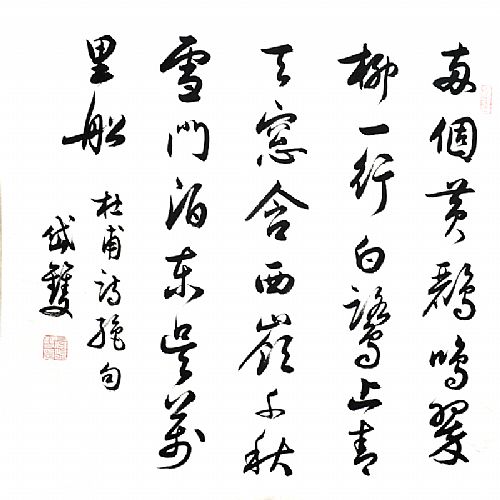 兩個黃鸝鳴翠
柳一行白鷺上青
天窓含西嶺千秋
雪門泊東吳萬
里船
杜甫詩絕句